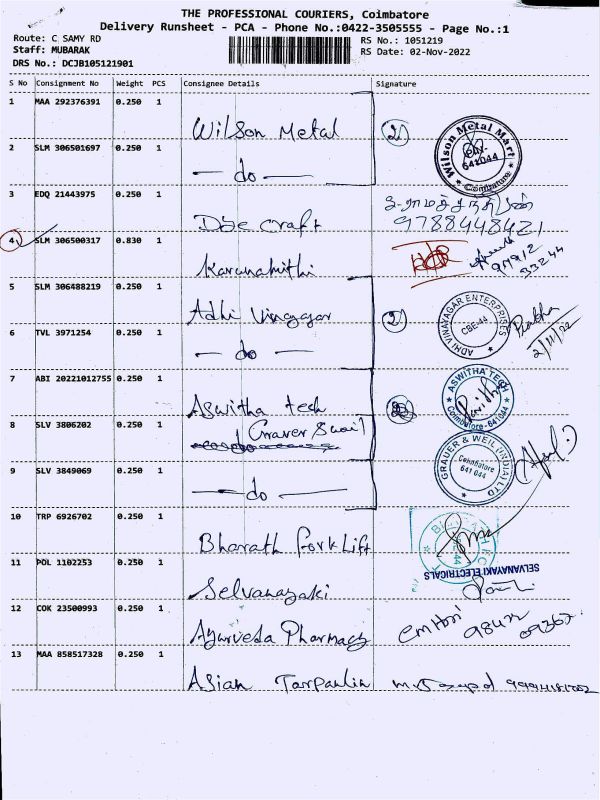 THE PROFESSIONAL COURIERS, Coimbatore
Delivery Runsheet - PCA - Phone No.:0422-3505555 - Page No.:1
Route: C SAMY RD RS No.: 1051219
Staff: MUBARAK RS Date: 02-Nov-2022
DRS No.: DCJB105121901
S No Consignment No Weight PCS Consignee Details Signature
1 MAA 292376391 0.250 1
Wilson Metal 2
Wilson Metal Mart
641044
Coimbatore
2 SLM 306501697 0.250 1
— do —
3 EDQ 21443975 0.250 1
craft
9788448421
4 SLM 306500317 0.830 1
Karunanithi
33244
5 SLM 306488219 0.250 1
Adhi Vinayagar 2
ADHI VINAYAGAR ENTERPRISES
CBE-44
Prabha
2/11/22
6 TVL 3971254 0.250 1
— do —
7 ABI 20221012755 0.250 1
Aswitha tech
ASWITHA TECH
Coimbatore-641 044
8 SLV 3806202 0.250 1
GRAUER & WEIL (INDIA) LTD
Coimbatore
641 044
9 SLV 3849069 0.250 1
— do —
10 TRP 6926702 0.250 1
Bharath Fork Lift
11 POL 1102253 0.250 1
SELVANAYAKI ELECTRICALS
Selvanayaki
12 COK 23500993 0.250 1
Ayurveda Pharmacy
13 MAA 858517328 0.250 1
Asian Tarpaulin